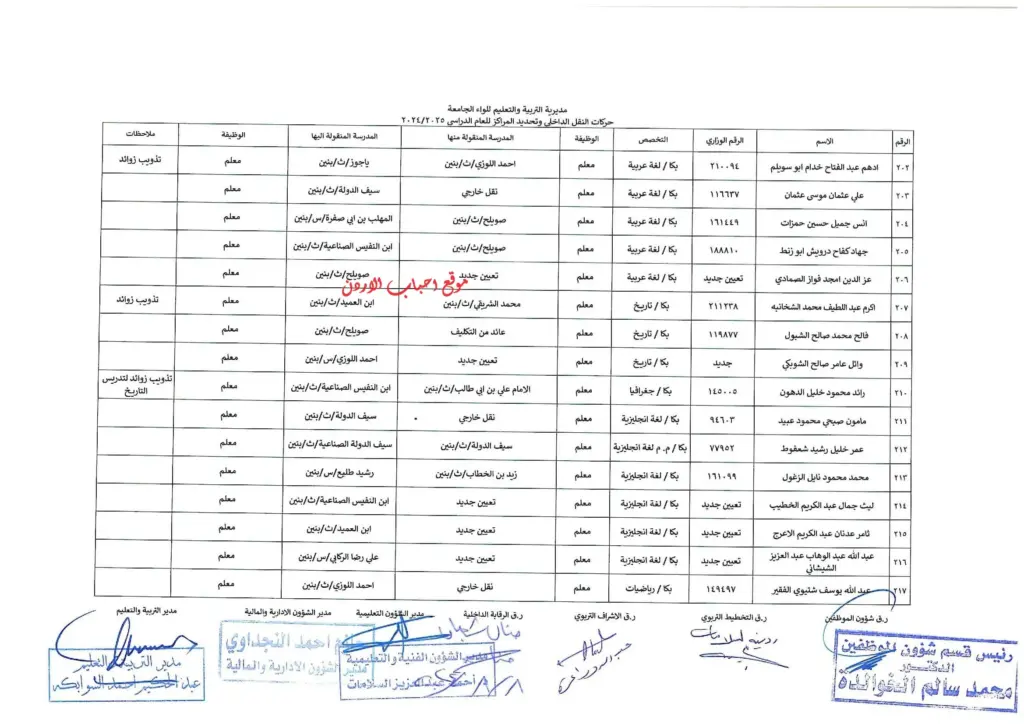 مديرية التربية والتعليم للواء الجامعة
حركات النقل الداخلي وتحديد المراكز للعام الدراسي ٢٠٢٤/٢٠٢٥
الرقم الاسم الرقم الوزاري التخصص الوظيفة المدرسة المنقولة منها المدرسة المنقولة اليها الوظيفة ملاحظات
٢٠٢ ادهم عبد الفتاح خدام ابو سويلم ٢١٠٠٩٤ بكا / لغة عربية معلم احمد اللوزي/ث/بنين ياجوز/ث/بنين معلم تذويب زوائد
٢٠٣ علي عثمان موسى عثمان ١١٦٦٣٧ بكا / لغة عربية معلم نقل خارجي سيف الدولة/ث/بنين معلم
٢٠٤ انس جميل حسين حمزات ١٦١٤٤٩ بكا / لغة عربية معلم صويلح/ث/بنين المهلب بن ابي صفرة/س/بنين معلم
٢٠٥ جهاد كفاح درويش ابو زنط ١٨٨٨١٠ بكا / لغة عربية معلم صويلح/ث/بنين ابن النفيس الصناعية/ث/بنين معلم
٢٠٦ عز الدين امجد فواز الصمادي تعيين جديد بكا / لغة عربية معلم تعيين جديد صويلح/ث/بنين معلم
موقع احباب الاردن
٢٠٧ اكرم عبد اللطيف محمد الشخانبه ٢١١٢٣٨ بكا / تاريخ معلم محمد الشريقي/ث/بنين ابن العميد/ث/بنين معلم تذويب زوائد
٢٠٨ فالح محمد صالح الشبول ١١٩٨٧٧ بكا / تاريخ معلم عائد من التكليف صويلح/ث/بنين معلم
٢٠٩ وائل عامر صالح الشوبكي جديد بكا / تاريخ معلم تعيين جديد احمد اللوزي/س/بنين معلم
٢١٠ رائد محمود خليل الدهون ١٤٥٠٠٥ بكا / جغرافيا معلم الامام علي بن ابي طالب/ث/بنين ابن النفيس الصناعية/ث/بنين معلم تذويب زوائد لتدريس التاريخ
٢١١ مامون صبحي محمود عبيد ٩٤٦٠٣ بكا / لغة انجليزية معلم نقل خارجي سيف الدولة/ث/بنين معلم
٢١٢ عمر خليل رشيد شعفوط ٧٧٩٥٢ بكا / م. م لغة انجليزية معلم سيف الدولة/ث/بنين سيف الدولة الصناعية/ث/بنين معلم
٢١٣ محمد محمود نايل الزغول ١٦١٠٩٩ بكا / لغة انجليزية معلم زيد بن الخطاب/ث/بنين رشيد طليع/س/بنين معلم
٢١٤ ليث جمال عبد الكريم الخطيب تعيين جديد بكا / لغة انجليزية معلم تعيين جديد ابن النفيس الصناعية/ث/بنين معلم
٢١٥ ثامر عدنان عبد الكريم الاعرج تعيين جديد بكا / لغة انجليزية معلم تعيين جديد ابن العميد/ث/بنين معلم
٢١٦ عبد الله عبد الوهاب عبد العزيز الشيشاني تعيين جديد بكا / لغة انجليزية معلم تعيين جديد علي رضا الركابي/س/بنين معلم
٢١٧ عبد الله يوسف شتيوي الفقير ١٤٩٤٩٧ بكا / رياضيات معلم نقل خارجي احمد اللوزي/ث/بنين معلم
ر.ق شؤون الموظفين ر.ق التخطيط التربوي ر.ق الاشراف التربوي ر.ق الرقابة الداخلية مدير الشؤون التعليمية مدير الشؤون الادارية والمالية مدير التربية والتعليم
رئيس قسم شؤون الموظفين
الدكتور
محمد سالم الخوالدة
مدير الشؤون الفنية والتعليمية
عبدالعزيز السلامات
احمد النجداوي
مدير الشؤون الادارية والمالية
مدير التربية والتعليم